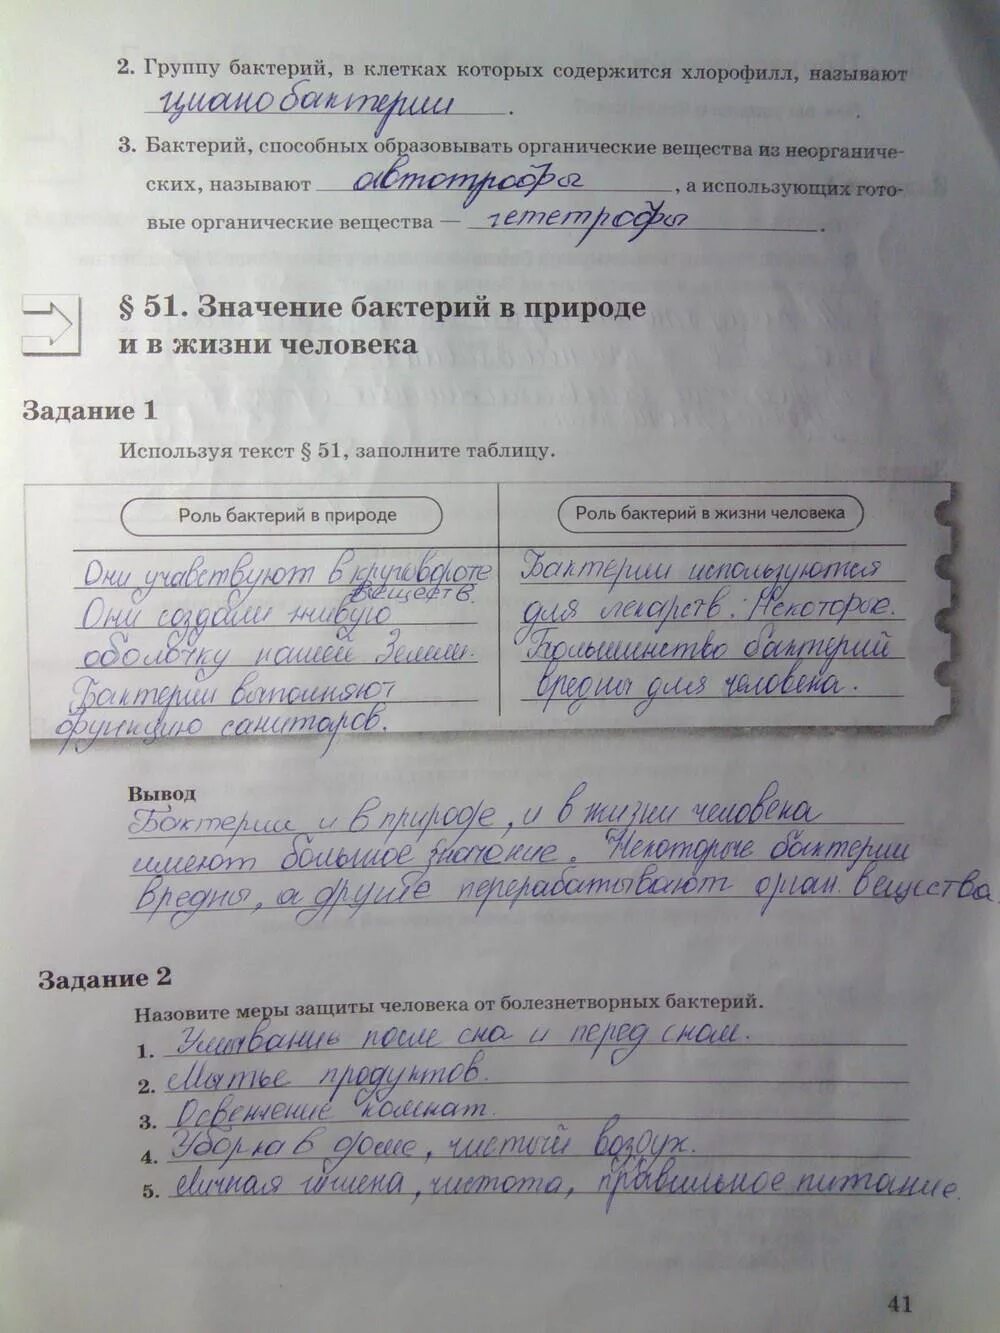 2. Группу бактерий, в клетках которых содержится хлорофилл, называют
цианобактерии .
3. Бактерий, способных образовывать органические вещества из неорганиче-
ских, называют автотрофы , а использующих гото-
вые органические вещества — гететрофы .
§ 51. Значение бактерий в природе
и в жизни человека
Задание 1
Используя текст § 51, заполните таблицу.
Роль бактерий в природе
Они учавствуют в круговороте
веществ.
Они создали живую
оболочку нашей Земли.
Бактерии выполняют
функцию санитаров.
Роль бактерий в жизни человека
Бактерии используются
для лекарств. Некоторые.
Большинство бактерий
вредны для человека.
Вывод
Бактерии и в природе, и в жизни человека
имеют большое значение. Некоторые бактерии
вредны, а другие перерабатывают орган. вещества.
Задание 2
Назовите меры защиты человека от болезнетворных бактерий.
1. Умывание после сна и перед сном.
2. Мытье продуктов.
3. комнат.
4. Уборка в доме, чистый воздух.
5. Личная гигиена, чистота, правильное питание.
41